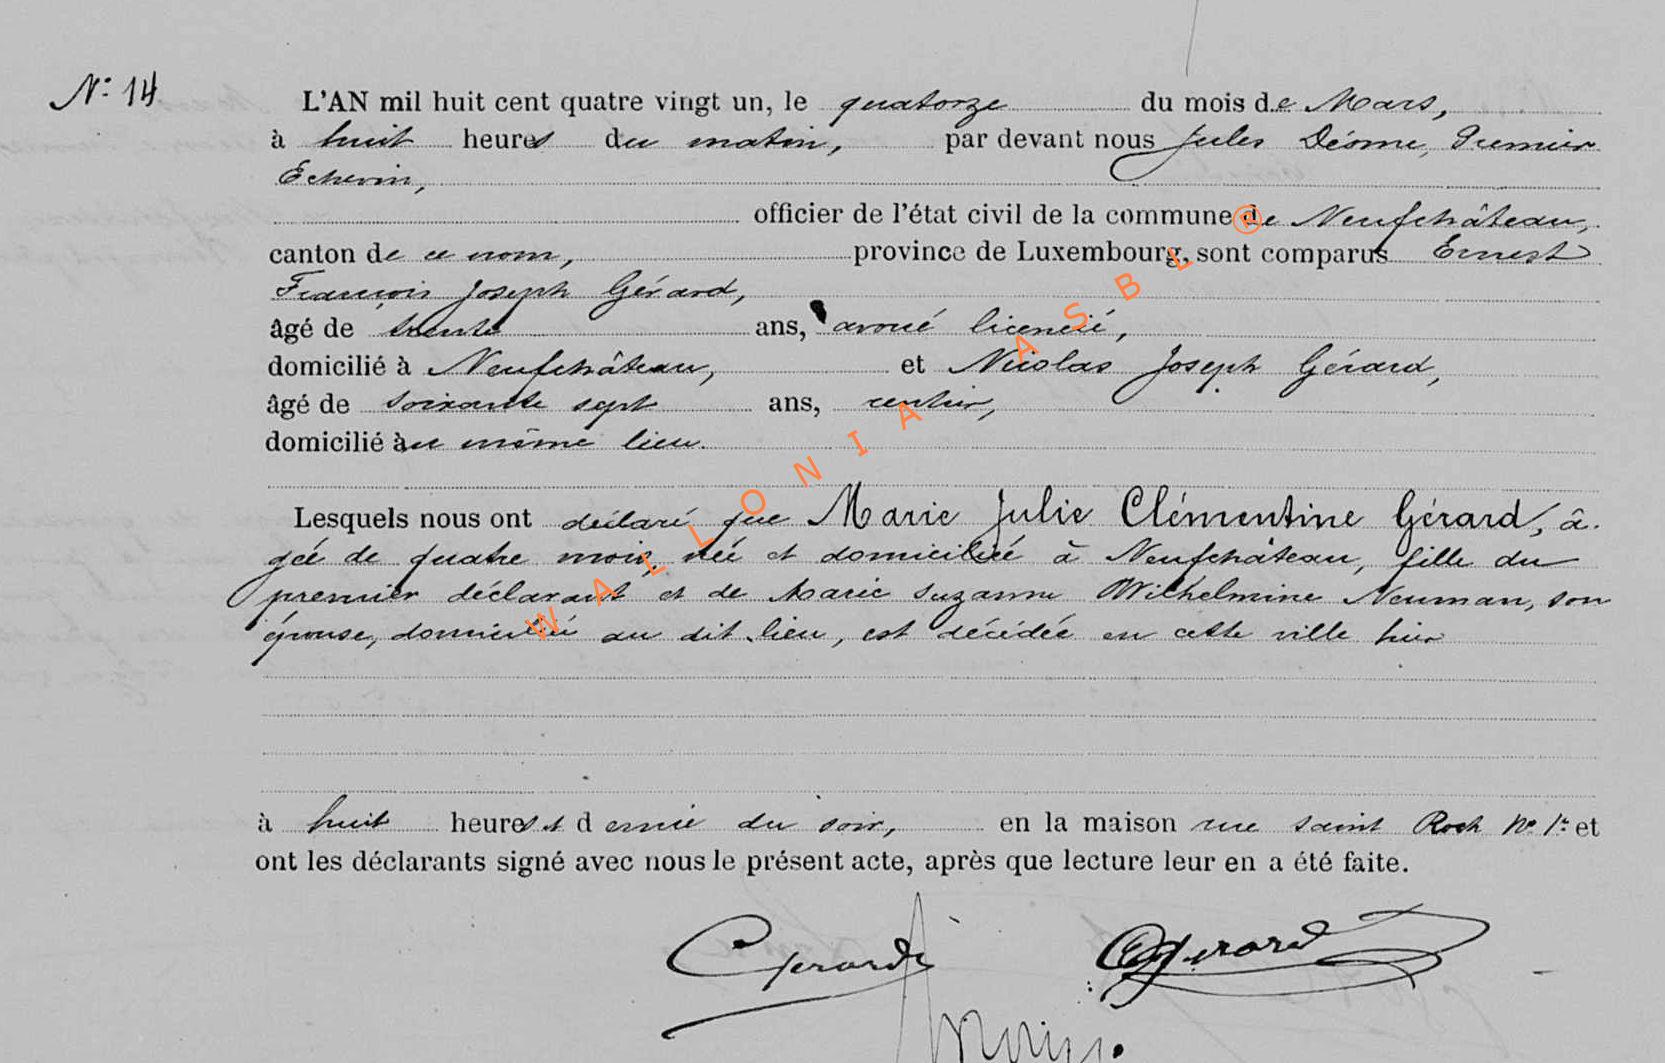 N° 14
L'AN mil huit cent quatre vingt un, le quatorze du mois de Mars,
à huit heures du matin, par devant nous Jules Déome, Premier
Echevin,
officier de l'état civil de la commune de Neufchâteau,
canton de ce nom, province de Luxembourg, sont comparus Ernest
François Joseph Gérard,
âgé de trente ans, avoué licencié,
domicilié à Neufchâteau, et Nicolas Joseph Gérard,
âgé de soixante sept ans, rentier,
domicilié au même lieu.
Lesquels nous ont déclaré que Marie Julie Clémentine Gérard, â-
gée de quatre mois, née et domiciliée à Neufchâteau, fille du
premier déclarant et de Marie Suzanne Wilhelmine Neuman, son
épouse, domiciliée au dit lieu, est décédée en cette ville hier
à huit heures et demie du soir, en la maison rue saint Roch N° 1er et
ont les déclarants signé avec nous le présent acte, après que lecture leur en a été faite.
Gerard Gerard
WALLONIA ASBL ®